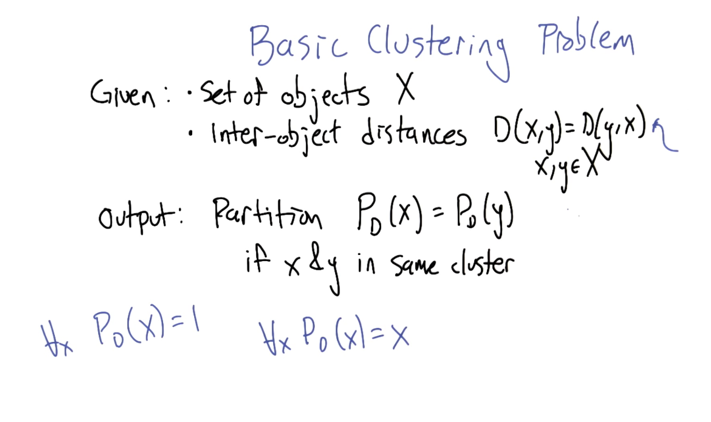 Basic Clustering Problem
Given: · Set of objects X
· Inter-object distances D(x,y)=D(y,x)
x,y∈X
Output: Partition P_D(x) = P_D(y)
if x & y in same cluster
∀x P_D(x)=1 ∀x P_D(x)=x